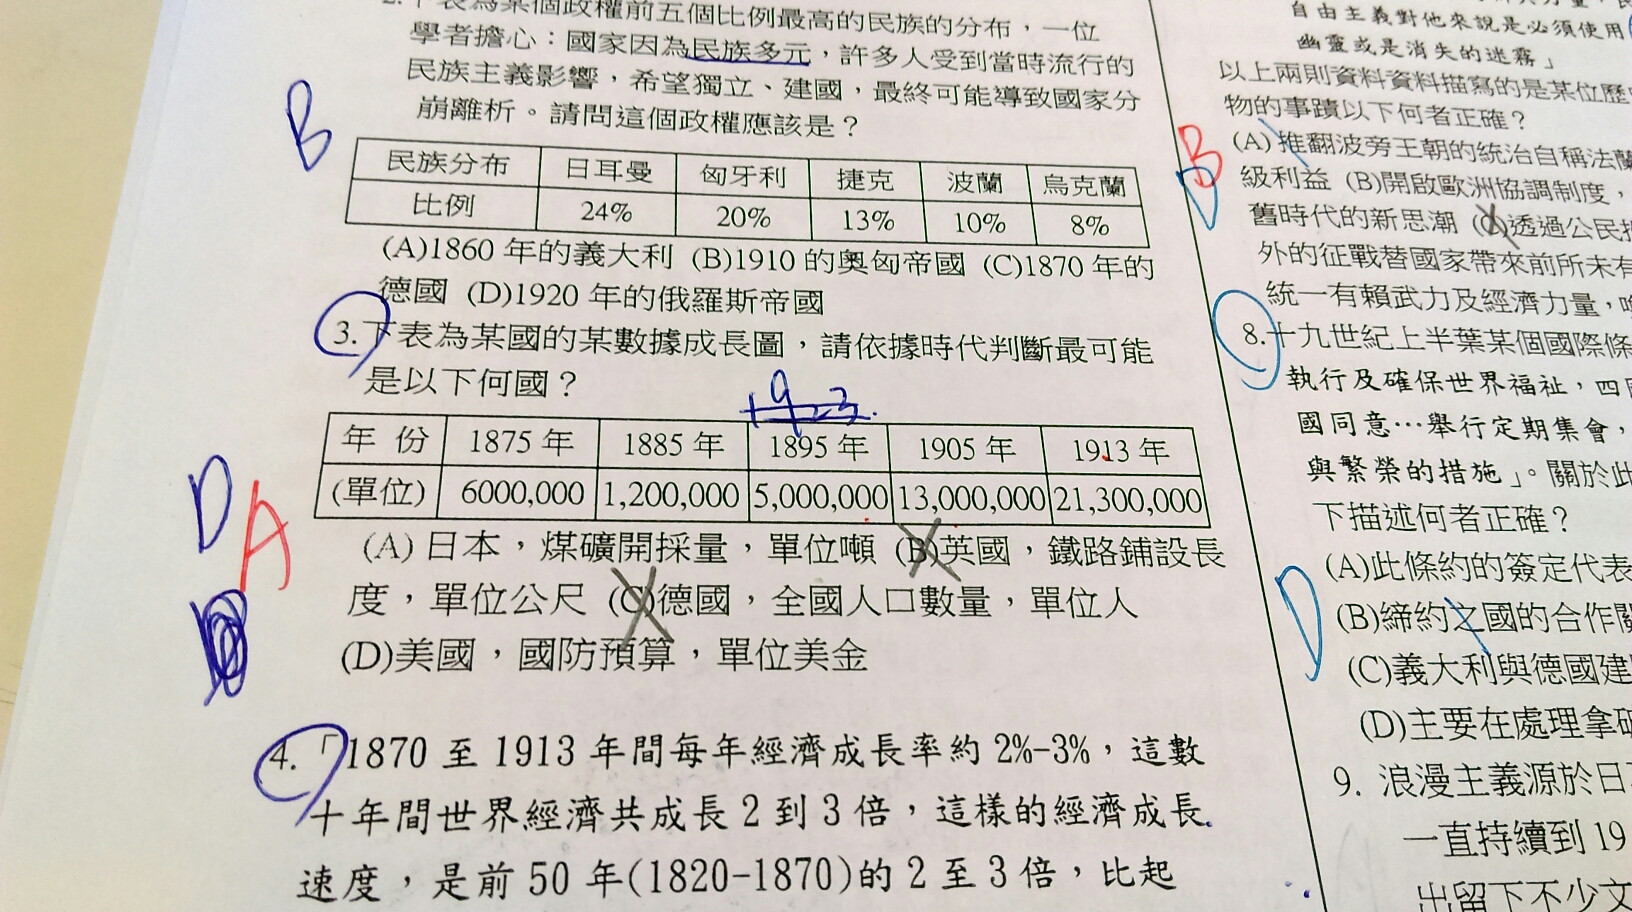 2.下表為某個政權前五個比例最高的民族的分布，一位
學者擔心：國家因為民族多元，許多人受到當時流行的
民族主義影響，希望獨立、建國，最終可能導致國家分
崩離析。請問這個政權應該是？
B
民族分布 日耳曼 匈牙利 捷克 波蘭 烏克蘭
比例 24% 20% 13% 10% 8%
(A)1860 年的義大利 (B)1910 的奧匈帝國 (C)1870 年的
德國 (D)1920 年的俄羅斯帝國
3.下表為某國的某數據成長圖，請依據時代判斷最可能
是以下何國？
年 份 1875 年 1885 年 1895 年 1905 年 1913 年
(單位) 6000,000 1,200,000 5,000,000 13,000,000 21,300,000
D
A
(A) 日本，煤礦開採量，單位噸 (B)英國，鐵路鋪設長
度，單位公尺 (C)德國，全國人口數量，單位人
(D)美國，國防預算，單位美金
4.「1870 至 1913 年間每年經濟成長率約 2%-3%，這數
十年間世界經濟共成長 2 到 3 倍，這樣的經濟成長
速度，是前 50 年(1820-1870)的 2 至 3 倍，比起
自由主義對他來說是必須使用
幽靈或是消失的迷霧」
以上兩則資料資料描寫的是某位歷
物的事蹟以下何者正確？
B
D
(A)推翻波旁王朝的統治自稱法蘭
級利益 (B)開啟歐洲協調制度，
舊時代的新思潮 (C)透過公民
外的征戰替國家帶來前所未有
統一有賴武力及經濟力量，
8.十九世紀上半葉某個國際條
執行及確保世界福祉，四
國同意…舉行定期集會，
與繁榮的措施」。關於此
下描述何者正確？
D
(A)此條約的簽定代表
(B)締約之國的合作關
(C)義大利與德國建
(D)主要在處理拿破
9. 浪漫主義源於日
一直持續到 19
出留下不少文